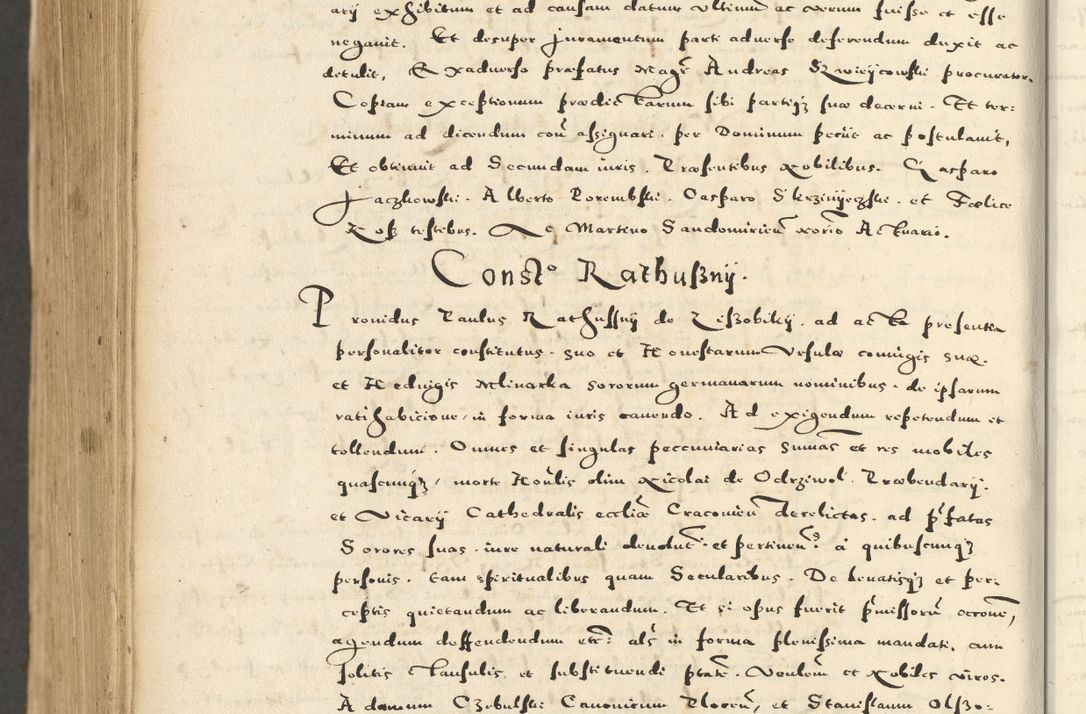 arij exhibitum et ad causam datum ultimum ac verum fuisse et esse
negauit. Et desuper Juramentum parti aduersę deferendum duxit ac
detulit, Exaduerso pręfatus Magr Andreas procurator.
Copiam exceptionum prędictarum sibi partiqȝ suę decerni. Et ter:
minum ad dicendum con assignari. per Dominum peciit ac postulauit,
Et obtinuit ad Secundam iuris. Pręsentibus Nobilibus. Gasparo
Jaczkowski. Alberto Porembski. Casparo et Fęlice
testibus. Ac Martino Sandomirien Norio Actuario.
Constᵒ Rathuſsnij.
Prouidus Paulus Rathussnij de ad acta presentia
personaliter constitutus. suo et Honestarum Ursulę coniugis suę.
et Heduigis Mlinarka sororum germanarum nominibus. de ipsarum
ratihabicione, in forma iuris cauendo. Ad exigendum repetendum et
tollendum. Omnes et singulas peccuniarias Sumas et res mobiles
quascunqȝ, morte Honlis olim Nicolai de Odrziwol. Prębendarij.
et Vicarij Cathedralis ecclię Cracouien derelictas. ad pfatas
Sorores suas. iure naturali deuolut. et pertinen. a quibuscunqȝ
personis. tam spiritualibus quam Secularibus. De leuatisqȝ et per:
ceptis quietandum ac liberandum. Et si opus fuerit pmissoru occone,
agendum deffendendum etc: als in forma plenissima mandati, cum
solitis clausulis et substituendi ptate. Venlem et Nobiles viros.
Adamum Czebulski Canonicum Plocen, et Stanislaum Olszo: